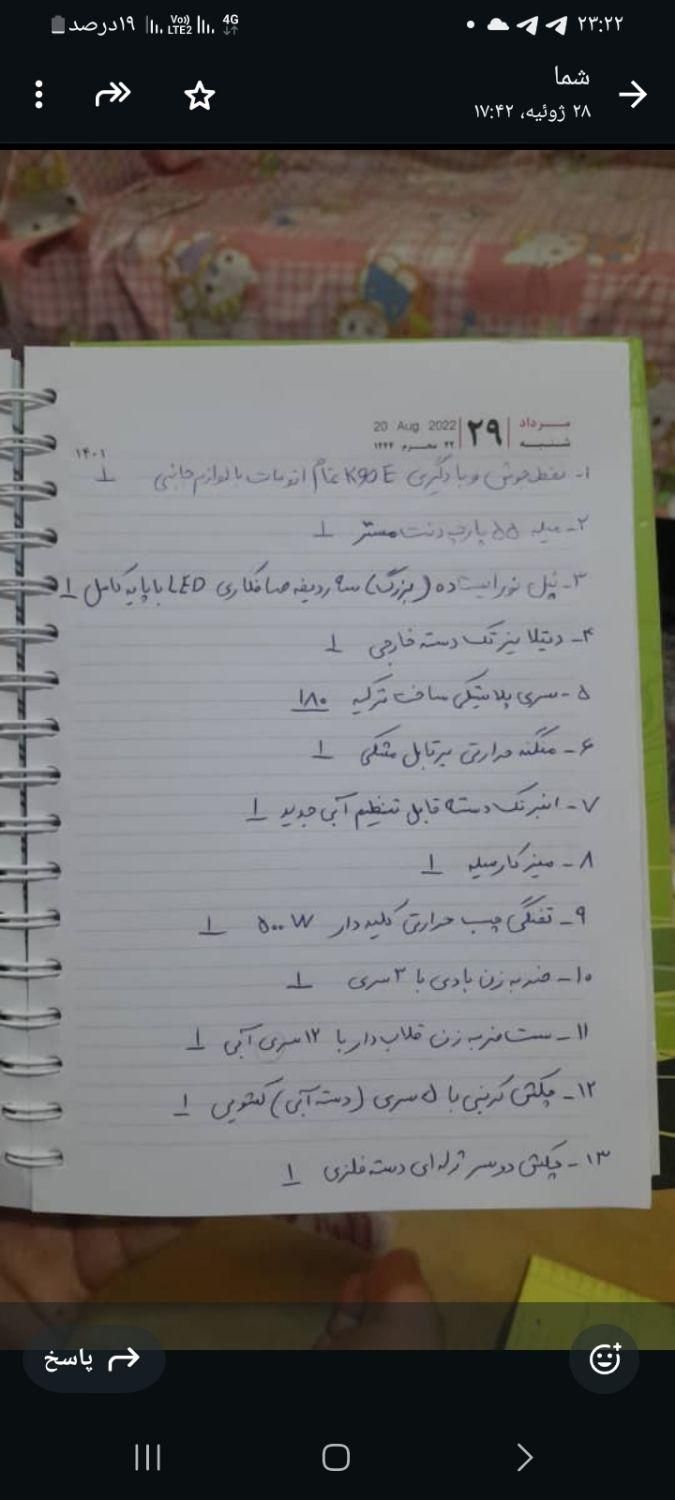 ۲۳:۲۲
4G Vo)) LTE2 ۱۹درصد
شما
۲۸ ژوئیه، ۱۷:۴۲
مرداد ۲۹ 20 Aug 2022
شنبه ۲۲ محرم ۱۴۴۴
۱۴۰۱
۱- نقطه جوش و بادگیری K90 E تمام اتومات با لوازم جانبی ۱
۲- میله ۵۵ پارچه دنت مستر ۱
۳- پنل نور ایستاده (بزرگ) سه ردیفه صافکاری LED با پایه کامل ۱
۴- دیتلایزر تک دسته خارجی ۱
۵- سری پلاستیکی صاف ترکیه ۱۸۰
۶- منگنه حرارتی پرتابل مشکی ۱
۷- انبر تک دسته قابل تنظیم آبی جدید ۱
۸- میز کار میله ۱
۹- تفنگی چسب حرارتی کلید دار 500W ۱
۱۰- ضربه زن بادی با ۳ سری ۱
۱۱- ست ضربه زن قلاب دار با ۱۲ سری آبی ۱
۱۲- چکش کربنی با ۵ سری (دسته آبی) کشویی ۱
۱۳- چکش دو سر ژله‌ای دسته فلزی ۱
پاسخ